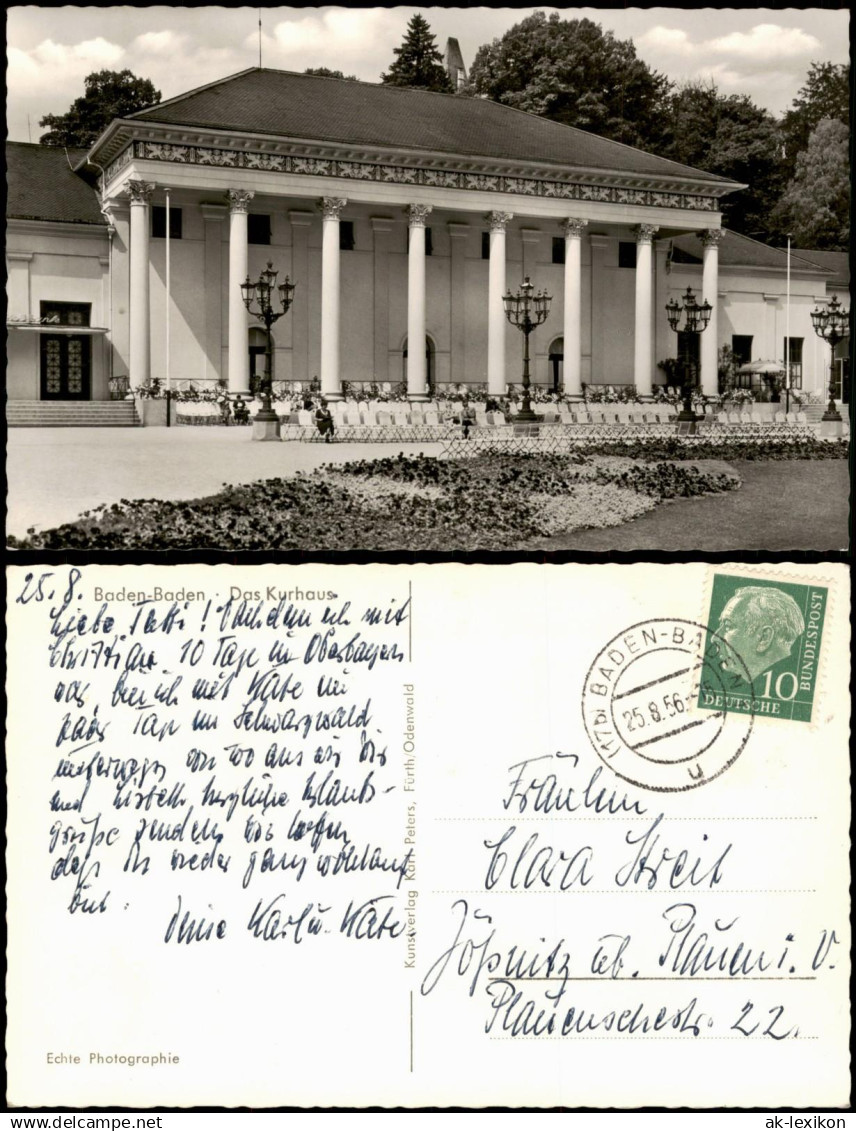 25.8. Baden-Baden · Das Kurhaus
Liebe Tatti! Nachdem ich mit
Christian 10 Tage in Oberbayern
war, bin ich mit Käte ein
paar Tage im Schwarzwald
unterwegs von wo aus wir Dir
und Lisbeth herzliche Urlaubs-
grüße senden. Wir hoffen
daß Du wieder ganz wohlauf
bist.
Deine Karl u. Käte.
Echte Photographie
Kunstverlag Karl Peters, Fürth/Odenwald
(17b) BADEN-BADEN
25.8.56
u
10
DEUTSCHE
BUNDESPOST
Fräulein
Clara Streit
Jößnitz üb. Plauen i. V.
Plauenschestr. 22.
ak-lexikon.com